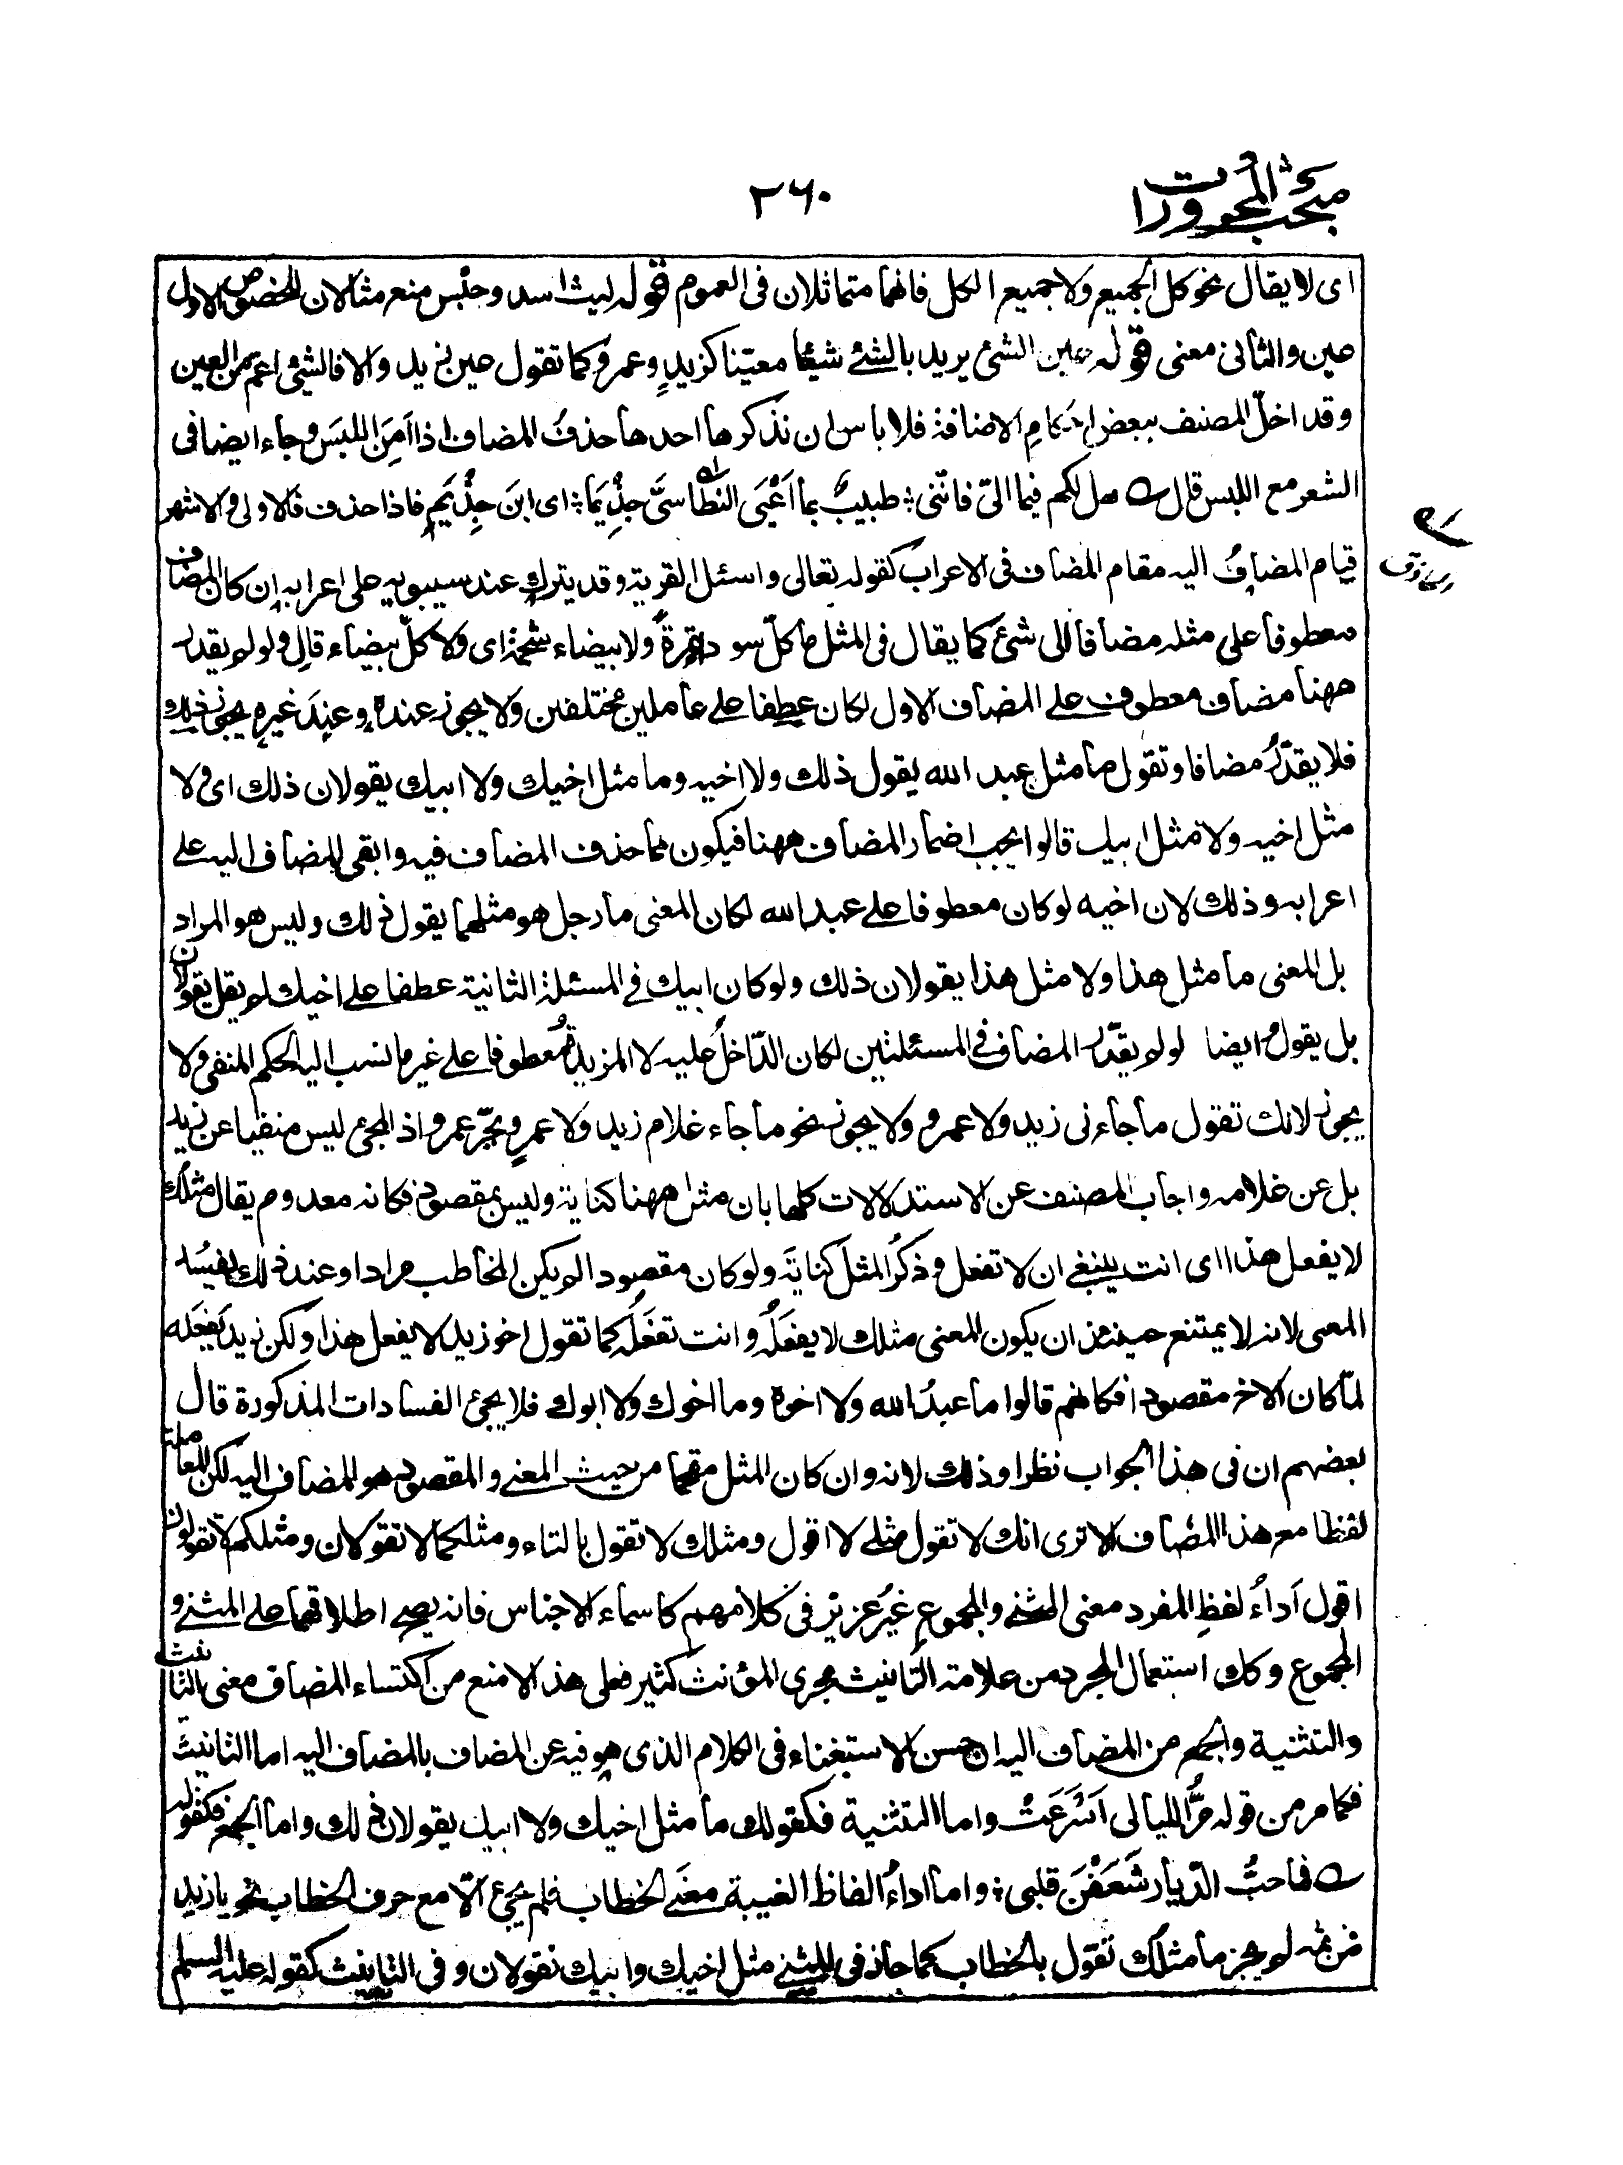 مبحث المجرورات
٢٦٠
اى لا يقال نحو كل الجميع ولا جميع الكل فانهما متماثلان فى العموم قوله ليث اسد وحبس منع مثالان للخصوص الاول
عين والثانى معنى قوله عين الشئ يريد بالشئ شيئا معيّنا كزيدٍ وعمرو كما تقول عين زيد والا فالشئ اعم من العين
وقد اخلّ المصنف ببعض احكامِ الاضافة فلا باس ان نذكرها احدها حذفُ المضاف اذا اَمِنَ اللبسَ وجاء ايضا فى
الشعر مع اللبس قال هل لكم فيما الىّ فانّنى طبيبٌ بما اَعْيَى النطاسىَّ حِذْيَمَا اى ابنَ حِذْيَمٍ فاذا حذف فالاولى والاشهر
قيام المضاف اليه مقام المضاف فى الاعراب كقوله تعالى واسئل القرية وقد يترك عند سيبويه على اعرابه إن كان المضاف
معطوفا على مثله مضافا الى شئ كما يقال فى المثل ما كلّ سوداء تمرةً ولا بيضاء شحمة اى ولا كلّ بيضاء قال ولو لم يقدر
ههنا مضاف معطوف على المضاف الاول لكان عطفا على عاملين مختلفين ولا يجوز عنده وعند غيره يجوز ذلك
فلا يقدَّر مضافا وتقول ما مثل عبد الله يقول ذلك ولا اخيه وما مثل اخيك ولا ابيك يقولان ذلك اى ولا
مثل اخيه ولا مثل ابيك قالوا يجب اضمار المضاف ههنا فيكون مما حذف المضاف فيه وابقى المضاف اليه على
اعرابه وذلك لان اخيه لو كان معطوفا على عبد الله لكان المعنى ما رجل هو مثلهما يقول ذلك وليس هو المراد
بل المعنى ما مثل هذا ولا مثل هذا يقولان ذلك ولو كان ابيك فى المسئلة الثانية عطفا على اخيك لم يقل يقولان
بل يقول وايضا لو لم يقدّر المضاف فى المسئلتين لكان الدّاخلُ عليه لا المزيدة معطوفا على غير ما نسب اليه الحكم المنفى ولا
يجوز لانك تقول ما جاءنى زيد ولا عمرو ولا يجوز نحو ما جاء غلام زيد ولا عمرٍو بجرّ عمرو اذ المجئ ليس منفيا عن زيد
بل عن غلامه واجاب المصنف عن الاستدلالات كلها بان مثل ههنا كناية وليس بمقصود فكانه معدوم يقال مثلك
لا يفعل هذا اى انت ينبغى ان لا تفعل وذكرُ المثل كنايةً ولو كان مقصودا لم يكن المخاطب مرادا وعند ذلك يفسد
المعنى لانه لا يمتنع حينئذ ان يكون المعنى مثلك لا يفعلُه وانت تفعلُه كما تقول اخو زيد لا يفعل هذا ولكن زيد يفعله
لمّا كان الاخر مقصودا فكانهم قالوا ما عبدُ الله ولا اخوه وما اخوك ولا ابوك فلا يجئ الفسادات المذكورة قال
بعضهم ان فى هذا الجواب نظرا وذلك لانه وان كان المثل مقحما من حيث المعنى والمقصود هو المضاف اليه لكن المعاملة
لفظا مع هذا المضاف الا ترى انك لا تقول مثلى لا اقول ومثلك لا تقول بالتاء ومثلكما لا تقولان ومثلكم لا تقولون
اقول اَداءُ لفظِ المفرد معنى المثنى والمجموع غيرُ عزيز فى كلامهم كاسماء الاجناس فانه يصح اطلاقها على المثنى و
المجموع وكذا استعمال المجرد من علامة التانيث مجرى المؤنث كثير فعلى هذا لا منع من اكتساء المضاف معنى التانيث
والتثنية والجمع من المضاف اليه ان حسن الاستغناء فى الكلام الذى هو فيه عن المضاف بالمضاف اليه اما التانيث
فكما مر من قوله مرُّ الليالى اَسْرَعَتْ واما التثنية فكقولك ما مثل اخيك ولا ابيك يقولان ذلك واما الجمع فكقوله
فما حبُّ الدّيار شَغَفْنَ قلبى واما اداءُ الفاظ الغيبة معنَى الخطاب فلم يجئ الّا مع حرف الخطاب نحو يا زيد
فمن ثمه لم يجز ما مثلُك تقول بالخطاب كما جاز فى المثنى مثل اخيك وابيك تقولان وفى التانيث كقوله عليه السلم